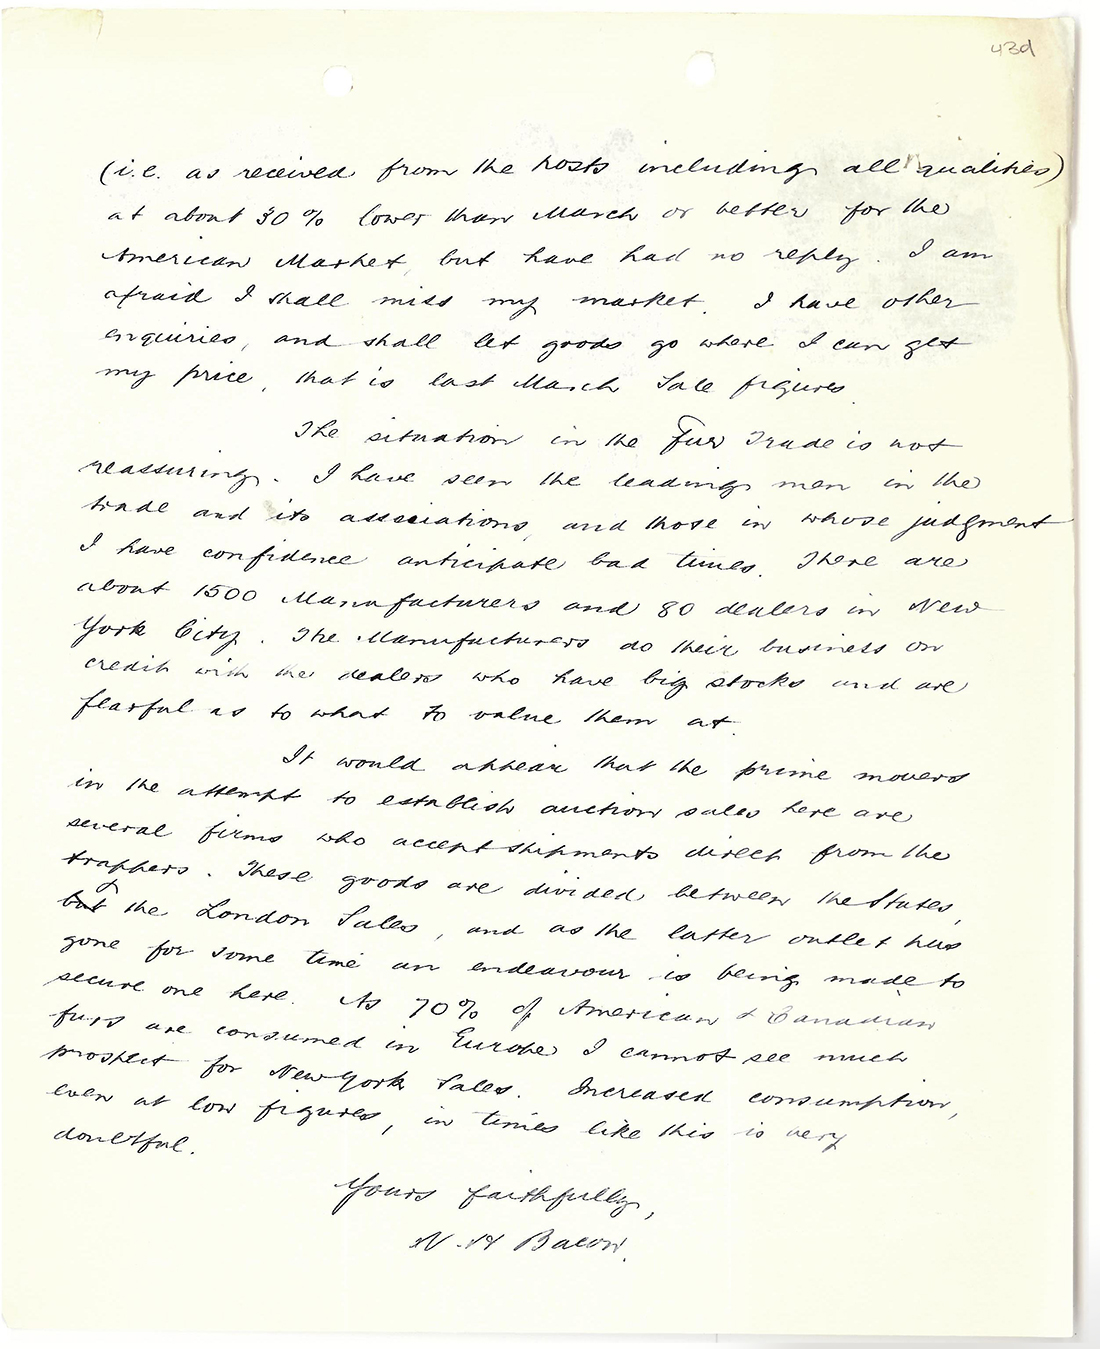 43d
(i.e. as received from the Posts including all qualities)
at about 30% lower than March or better for the
American Market, but have had no reply. I am
afraid I shall miss my market. I have other
enquiries, and shall let goods go where I can get
my price, that is last March Sale figures.
The situation in the Fur Trade is not
reassuring. I have seen the leading men in the
trade and its associations, and those in whose judgment
I have confidence anticipate bad times. There are
about 1500 Manufacturers and 80 dealers in New
York City. The Manufacturers do their business on
credit with the dealers who have big stocks and are
fearful as to what to value them at.
It would appear that the prime movers
in the attempt to establish auction sales here are
several firms who accept shipments direct from the
trappers. These goods are divided between the States,
the London Sales, and as the latter outlet has
gone for some time an endeavour is being made to
secure one here. As 70% of American & Canadian
furs are consumed in Europe I cannot see much
prospect for New York Sales. Increased consumption,
even at low figures, in times like this is very
doubtful.
Yours faithfully,
N. H Bacon.